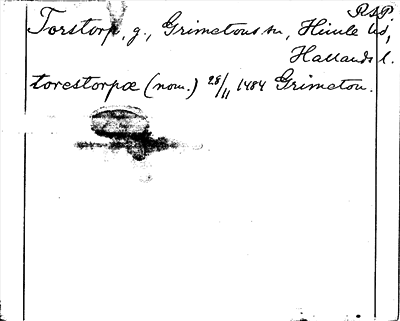 R.S.P.
Torstorp, g., Grimetons sn, Himle hd,
Hallands l.
torestorpæ (nom.) 28/11 1484 Grimeton.